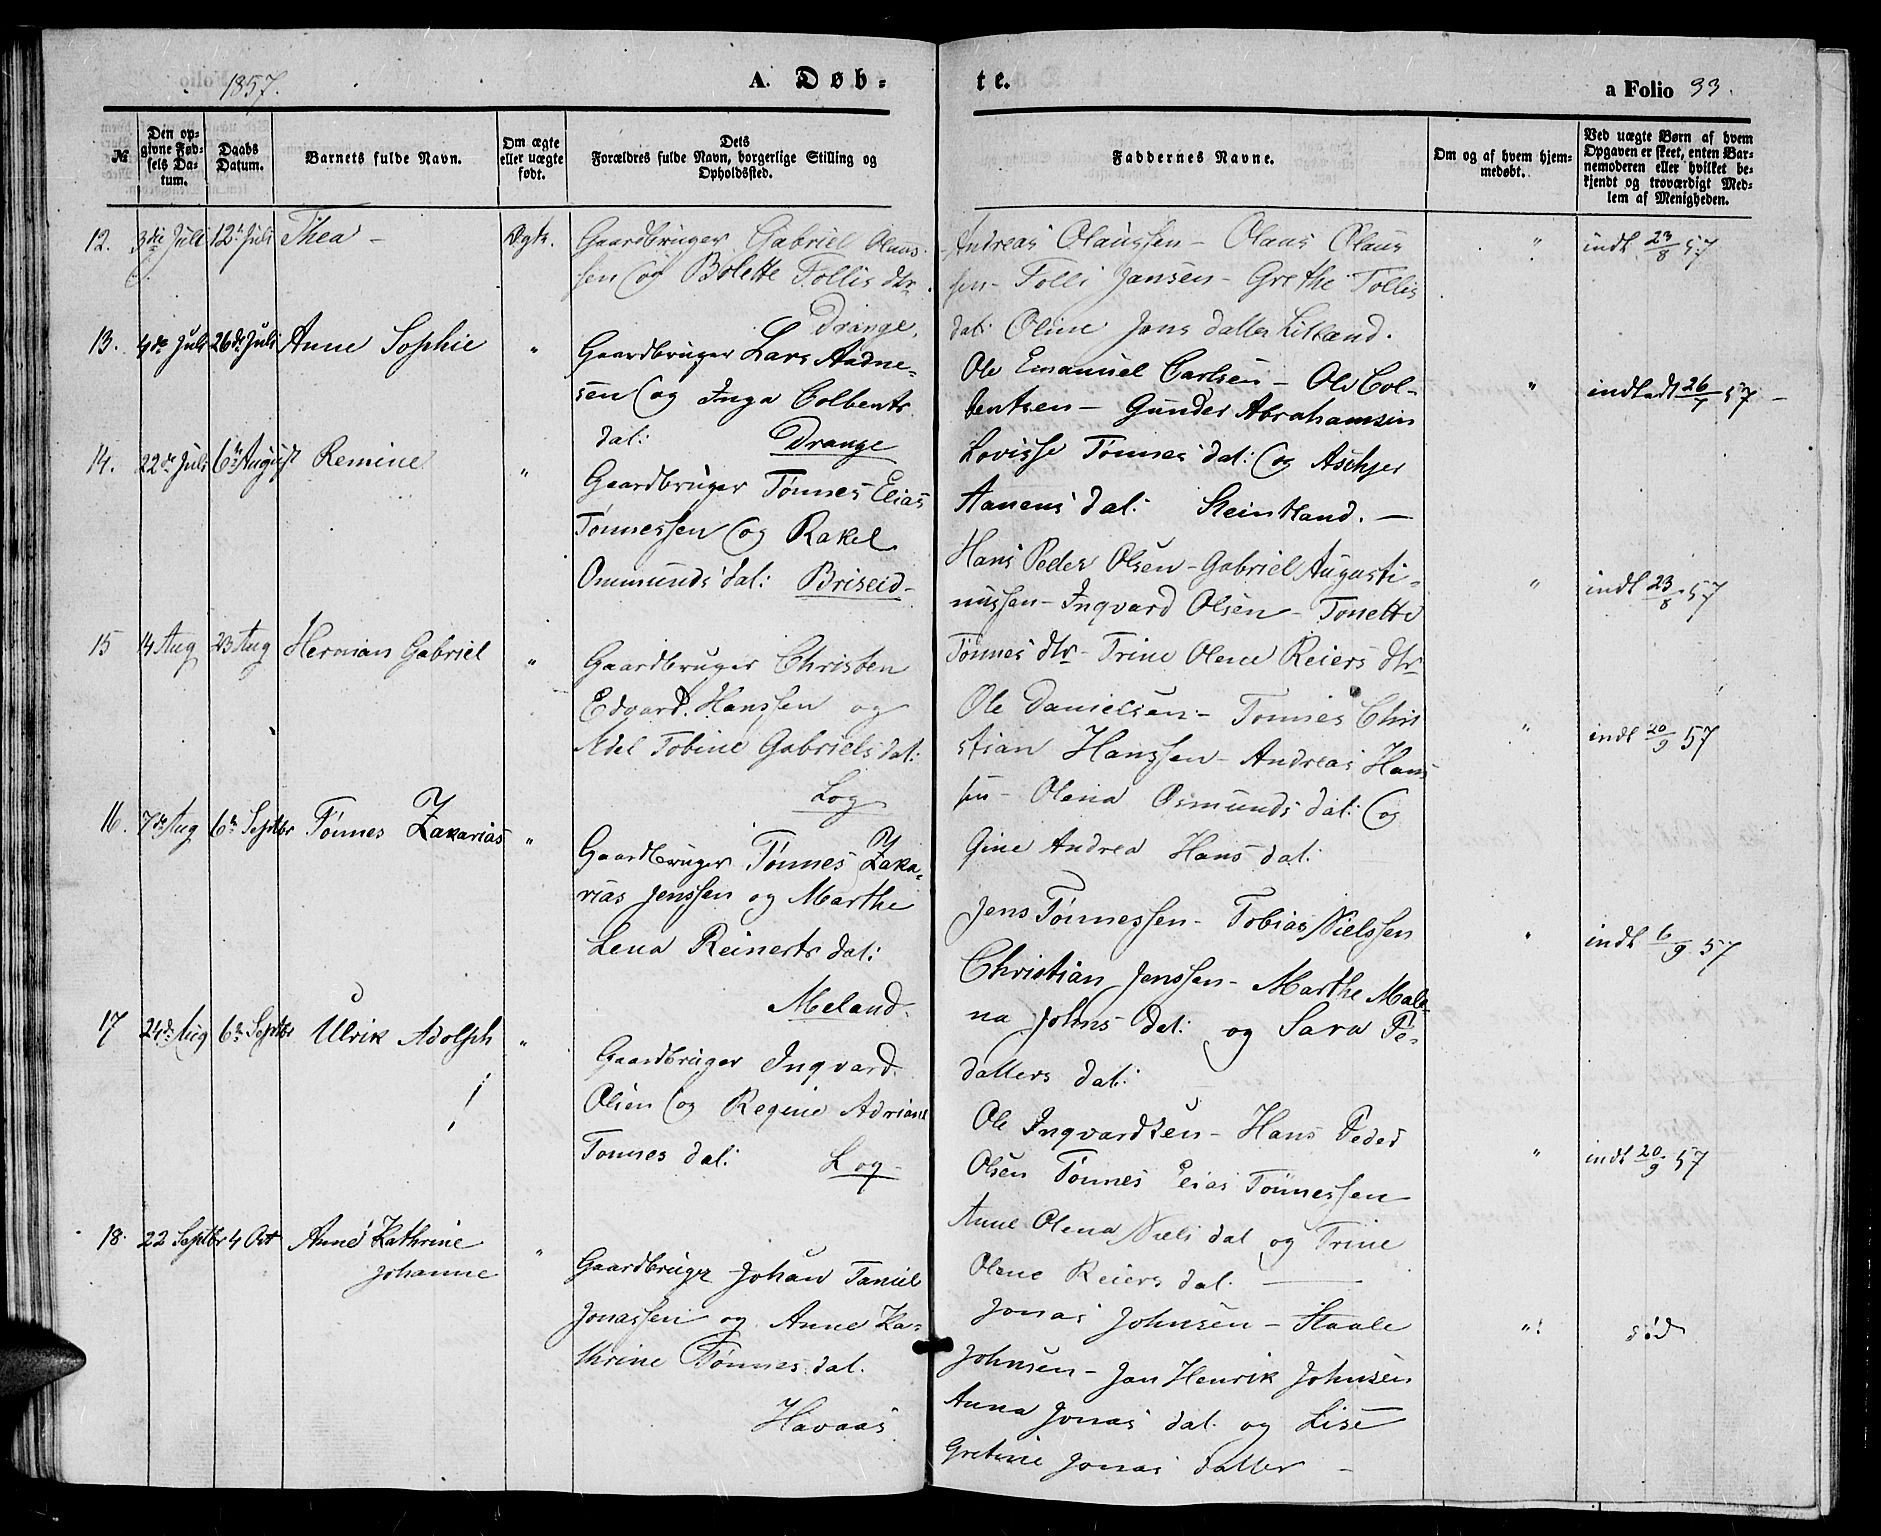 1857.
A. Døb-
te.
a Folio 33.
№
Den op-
givne Fød-
sels Da-
tum.
Daabs
Datum.
Barnets fulde Navn.
Om ægte
eller uægte
født.
Dets
Forældres fulde Navn, borgerlige Stilling og
Opholdssted.
Faddernes Navne.
Om og af hvem hjem-
medøbt.
Ved uægte Børn af hvem
Opgaven er skeet, enten Bar-
nemoderen eller hvilket be-
kjendt og troværdigt Med-
lem af Menigheden.
12. 3die Juli 12te Juli Thea - Ægte.
Gaardbruger Gabriel Olaus-
sen og Bolette Tollis dtr.
Drange.
Andreas Olaussen - Olaus Olaus
sen - Tolli Jansen - Grethe Tollis
dat: Oline Jons datter Litland.
" indt 23/8 57
13. 4de Juli 26de Juli Anne Sophie "
Gaardbruger Lars Aadne-
sen og Inga Colbents
dat: Drange
Ole Emanuel Carlsen - Ole Col-
bentsen - Gunder Abrahamsen
Lovisse Tønnes dat: og Aschjer
Aanens dat: Steinland. -
" indtadt 26/7 57 -
14. 22de Juli 6te August Remine "
Gaardbruger Tønnes Elias
Tønnessen og Rakel
Ommunds dat: Briseid -
Hans Peder Olsen - Gabriel Augusti-
nussen - Ingvard Olsen - Tonette
Tønnes dtr - Trine Olene Reiers dtr
" indt 23/8 57
15 14 Aug 23 Aug Herman Gabriel "
Gaardbruger Christen
Edvard Hanssen og
Adel Tobine Gabriels dat:
Log
Ole Danielsen - Tønnes Chri
stian Hanssen - Andreas Hans
sen - Olena Osmunds dat: og
Gine Andrea Hans dat:
" indt 20/9 57
16. 7de Aug 6te Septbr Tønnes Zakarias "
Gaardbruger Tønnes Zaka-
rias Jenssen og Marthe
Lena Reinerts dat:
Meland.
Jens Tønnessen - Tobias Nielssen
Christian Jenssen - Marthe Male
na Johns dat: og Sara Pe-
datters dat:
" indt 6/9 57
17 24de Aug 6te Septbr Ulrik Adolph "
Gaardbruger Ingvard
Olsen og Regine Adriane
Tønnes dat: Log
Ole Ingvardsen - Hans Peder
Olsen Tønnes Elias Tønnessen
Anne Olena Niels dat og Trine
Olene Reiers dat.
" indt 20/9 57
18. 22 Septbr 4 Oct Anne Kathrine
Johanne "
Gaardbruger Johan Taniel
Jonassen og Anne Ka-
thrine Tønnes dat.
Havaas
Jonas Johnsen - Staale
Johnsen - Jan Henrik Johnsen
Anna Jonas dat. og Lise
Gretine Jonas datter -
"